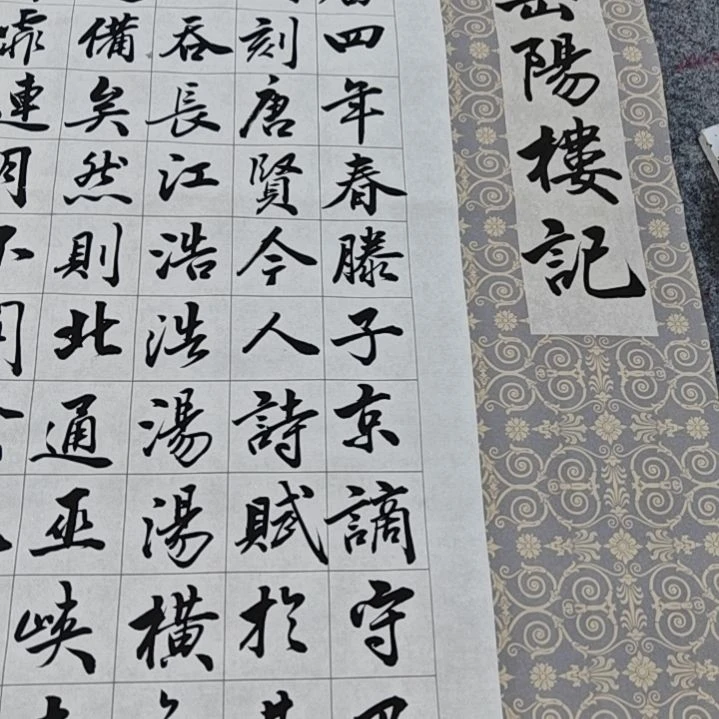 岳陽樓記
四年春滕子京謫守
刻唐賢今人詩賦於其
吞長江浩浩湯湯橫
備矣然則北通巫峽
霏連月不開